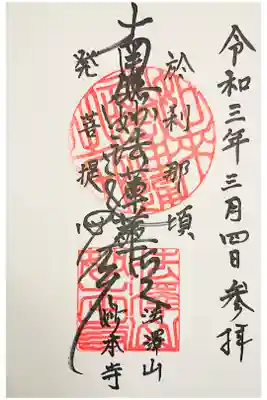 令和三年三月四日参拝
於刹那頃
法澤山
妙本寺
南無妙法蓮華経
発菩提心